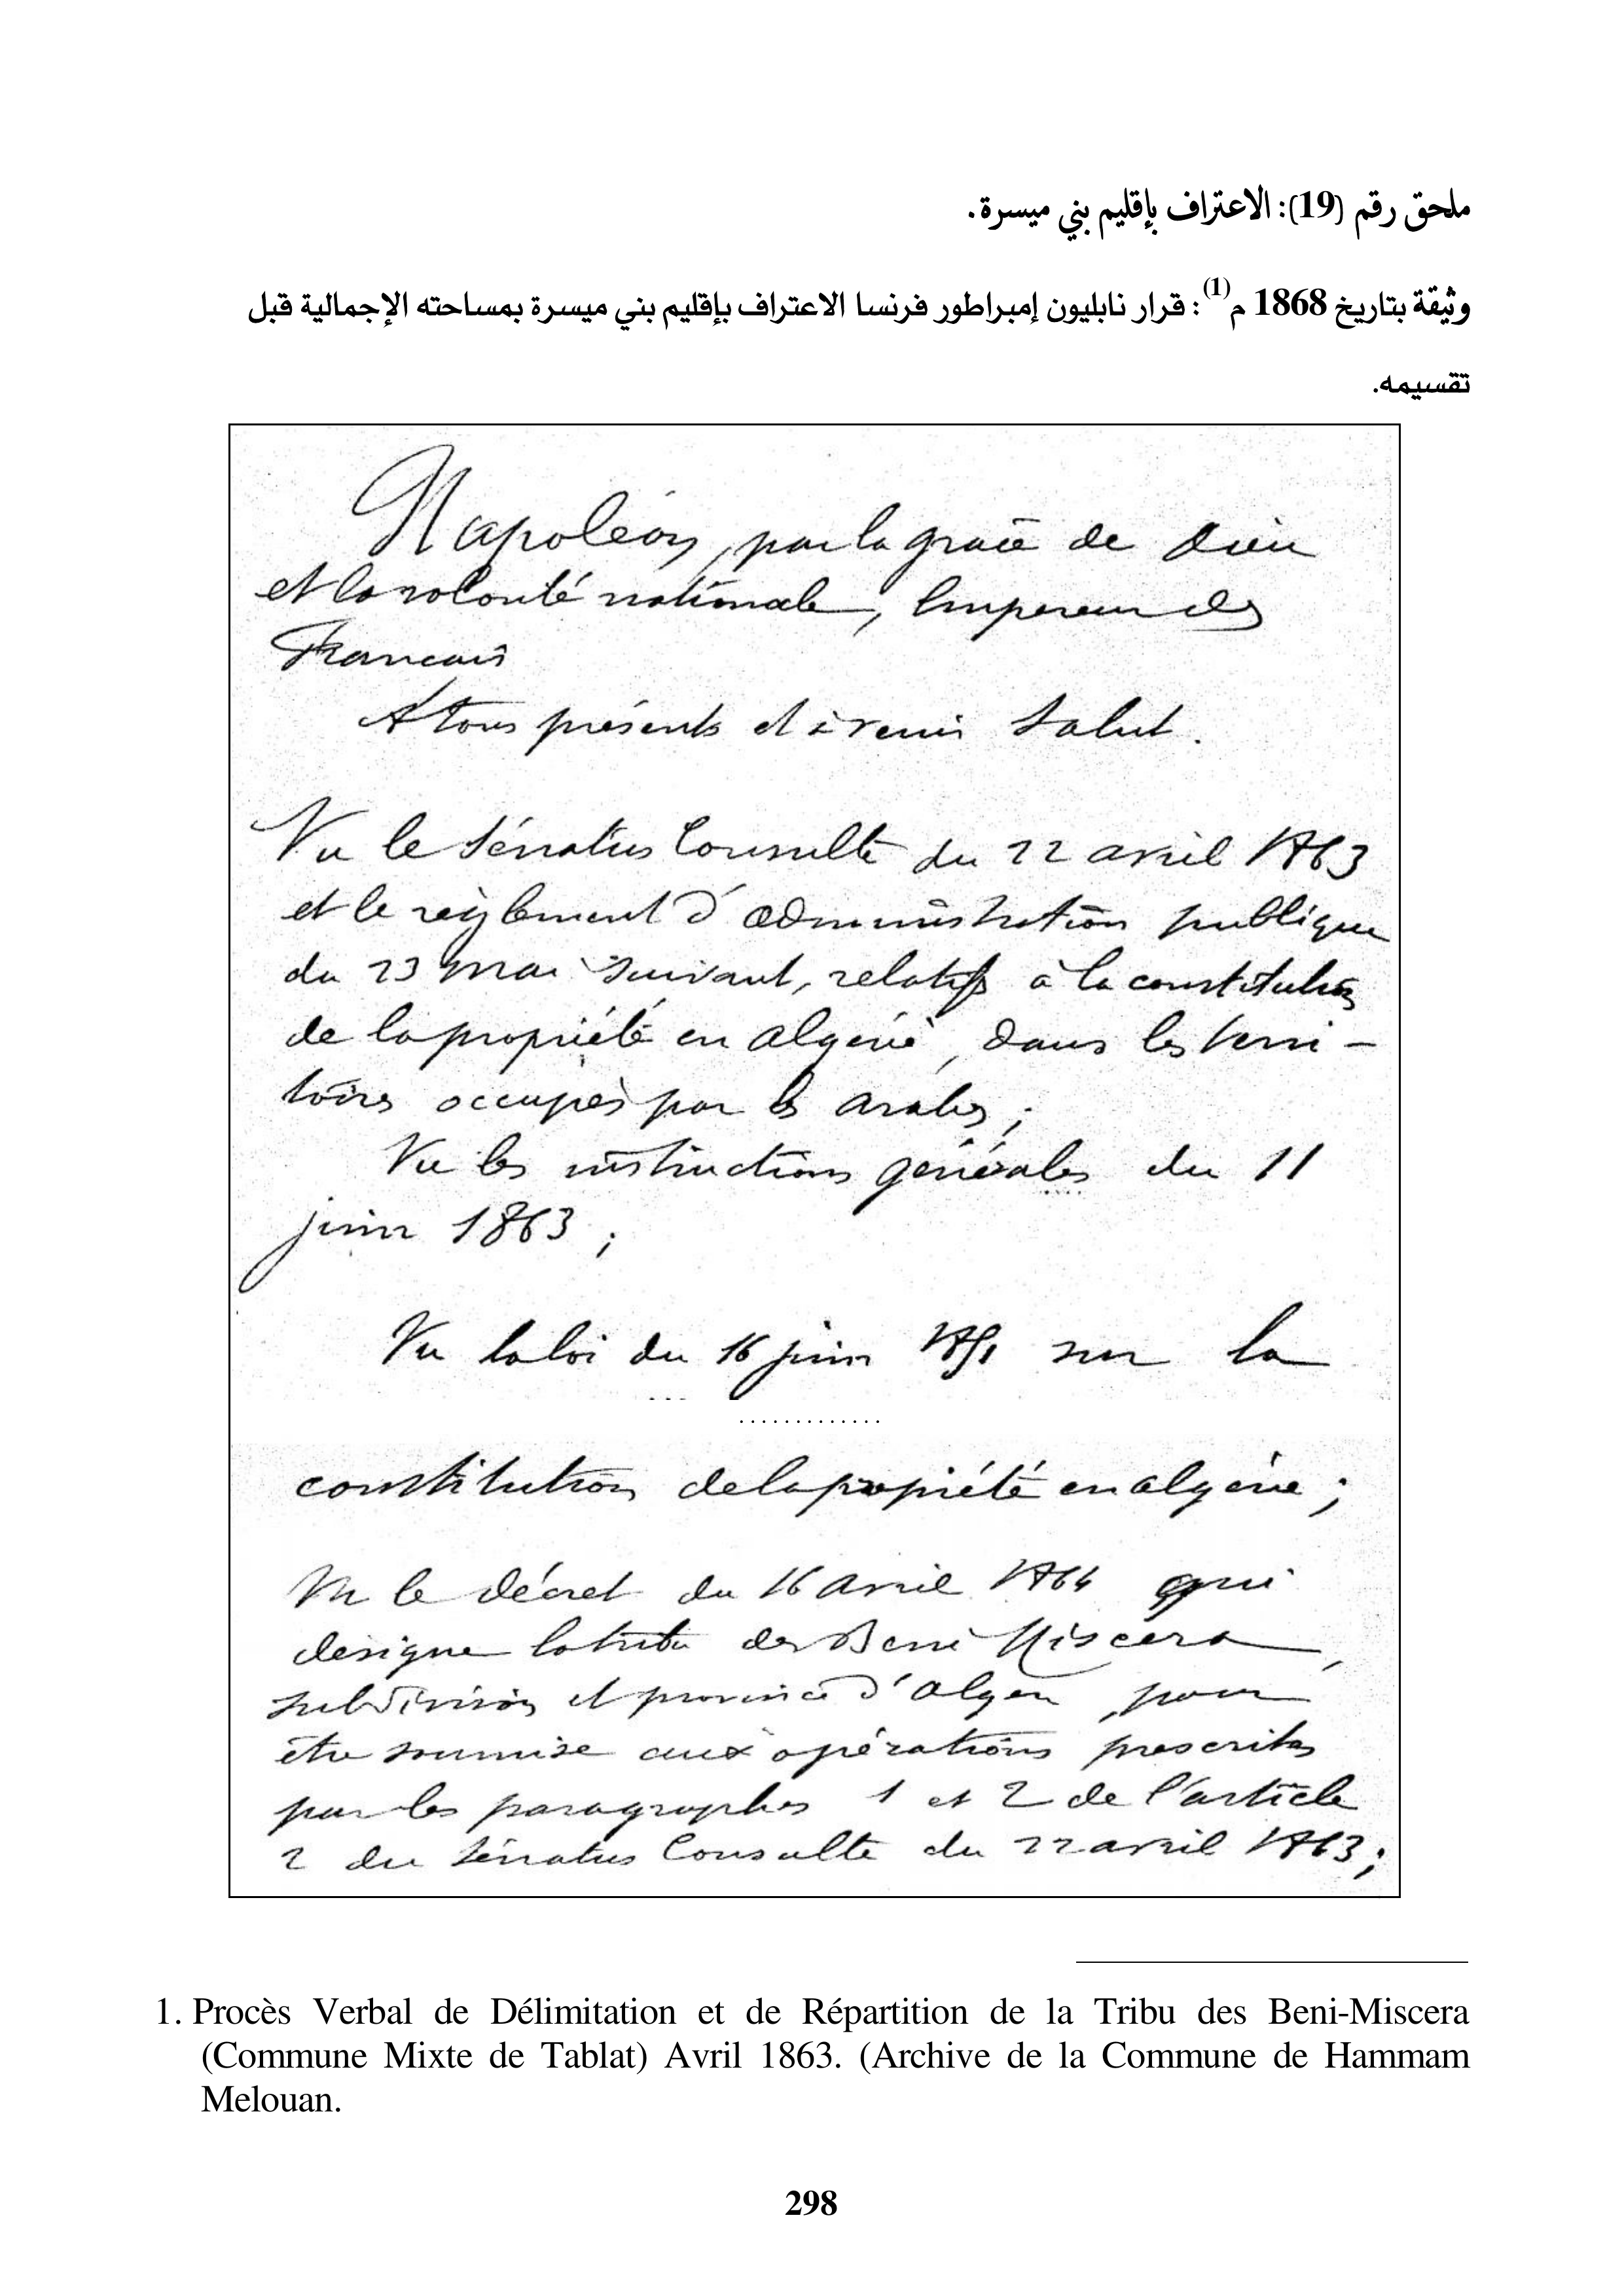 ملحق رقم (19): الاعتراف بإقليم بني ميسرة.
وثيقة بتاريخ 1868 م(1): قرار نابليون إمبراطور فرنسا الاعتراف بإقليم بني ميسرة بمساحته الإجمالية قبل
تقسيمه.
Napoléon, par la grâce de Dieu
et la volonté nationale, Empereur des
Francais
A tous présents et à venir Salut.
Vu le Sénatus Consulte du 22 avril 1863
et le règlement d'administration publique
du 23 mai suivant, relatifs à la constitution
de la propriété en algérie, dans les terri-
toires occupés par les arabes;
Vu les instructions générales du 11
juin 1863;
Vu la loi du 16 juin 1851 sur la
.............
constitution de la propriété en algérie;
Vu le décret du 16 avril 1864 qui
designe la tribu des Beni Miscera,
subdivision et province d'Alger, pour
être soumise aux opérations prescrites
par les paragraphes 1 et 2 de l'article
2 du Sénatus Consulte du 22 avril 1863;
1. Procès Verbal de Délimitation et de Répartition de la Tribu des Beni-Miscera
(Commune Mixte de Tablat) Avril 1863. (Archive de la Commune de Hammam
Melouan.
298